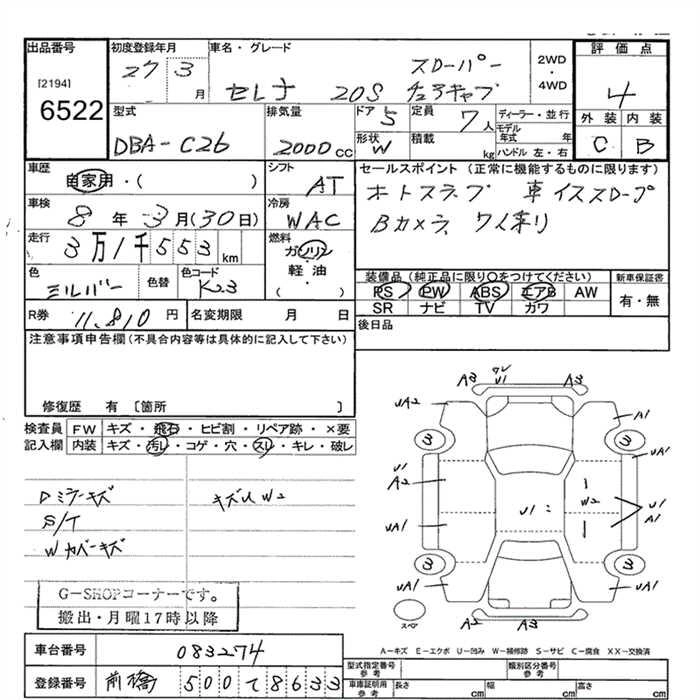 出品番号 初度登録年月 車名・グレード 評価点
[2194] 27 3月 セレナ 20S スローパー チェアキャブ 2WD・4WD 4
6522
型式 排気量 ドア 5 定員 7人 ディーラー・並行 外装 内装
DBA-C26 2000cc 形状 W 積載 kg モデル年式 年 ハンドル 左・右 C B
車歴 自家用・( ) シフト AT セールスポイント(正常に機能するものに限ります)
車検 8年3月(30日) 冷房 WAC オートスライド 車イススロープ
Bカメラ 7人乗り
走行 3万1千553km 燃料 ガソリン
軽油
( )
色 シルバー 色替 色コード K23 装備品(純正品に限り○をつけてください) 新車保証書
PS PW ABS エアB AW 有・無
SR ナビ TV カワ
R券 11,810円 名変期限 月 日 後日品
注意事項申告欄(不具合内容等は具体的に記入して下さい)
修復歴 有〔箇所 〕
検査員 FW キズ・飛石・ヒビ割・リペア跡・×要
記入欄 内装 キズ・汚レ・コゲ・穴・スレ・キレ・破レ
Dミラーキズ キズUW2
S/T
Wカバーキズ
G-SHOPコーナーです。
搬出・月曜17時以降
A3 U1 A3
UA2 A1
3 3
U1 UA1
A2
U1 W2 U1
A1
UA1 UA1
3 3
UA1 UA1
スペア A2 A3
A-キズ E-エクボ U-凹み W-補修跡 S-サビ C-腐食 XX-交換済
車台番号 083274 型式指定番号 参考 類別区分番号 参考
登録番号 前橋 500て8633 車庫証明用 参考 長さ cm 幅 cm 高さ cm